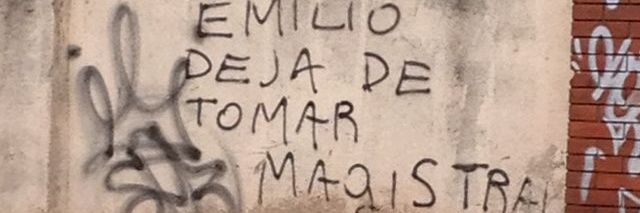 EMILIO
DEJA DE
TOMAR
MAGISTRAL